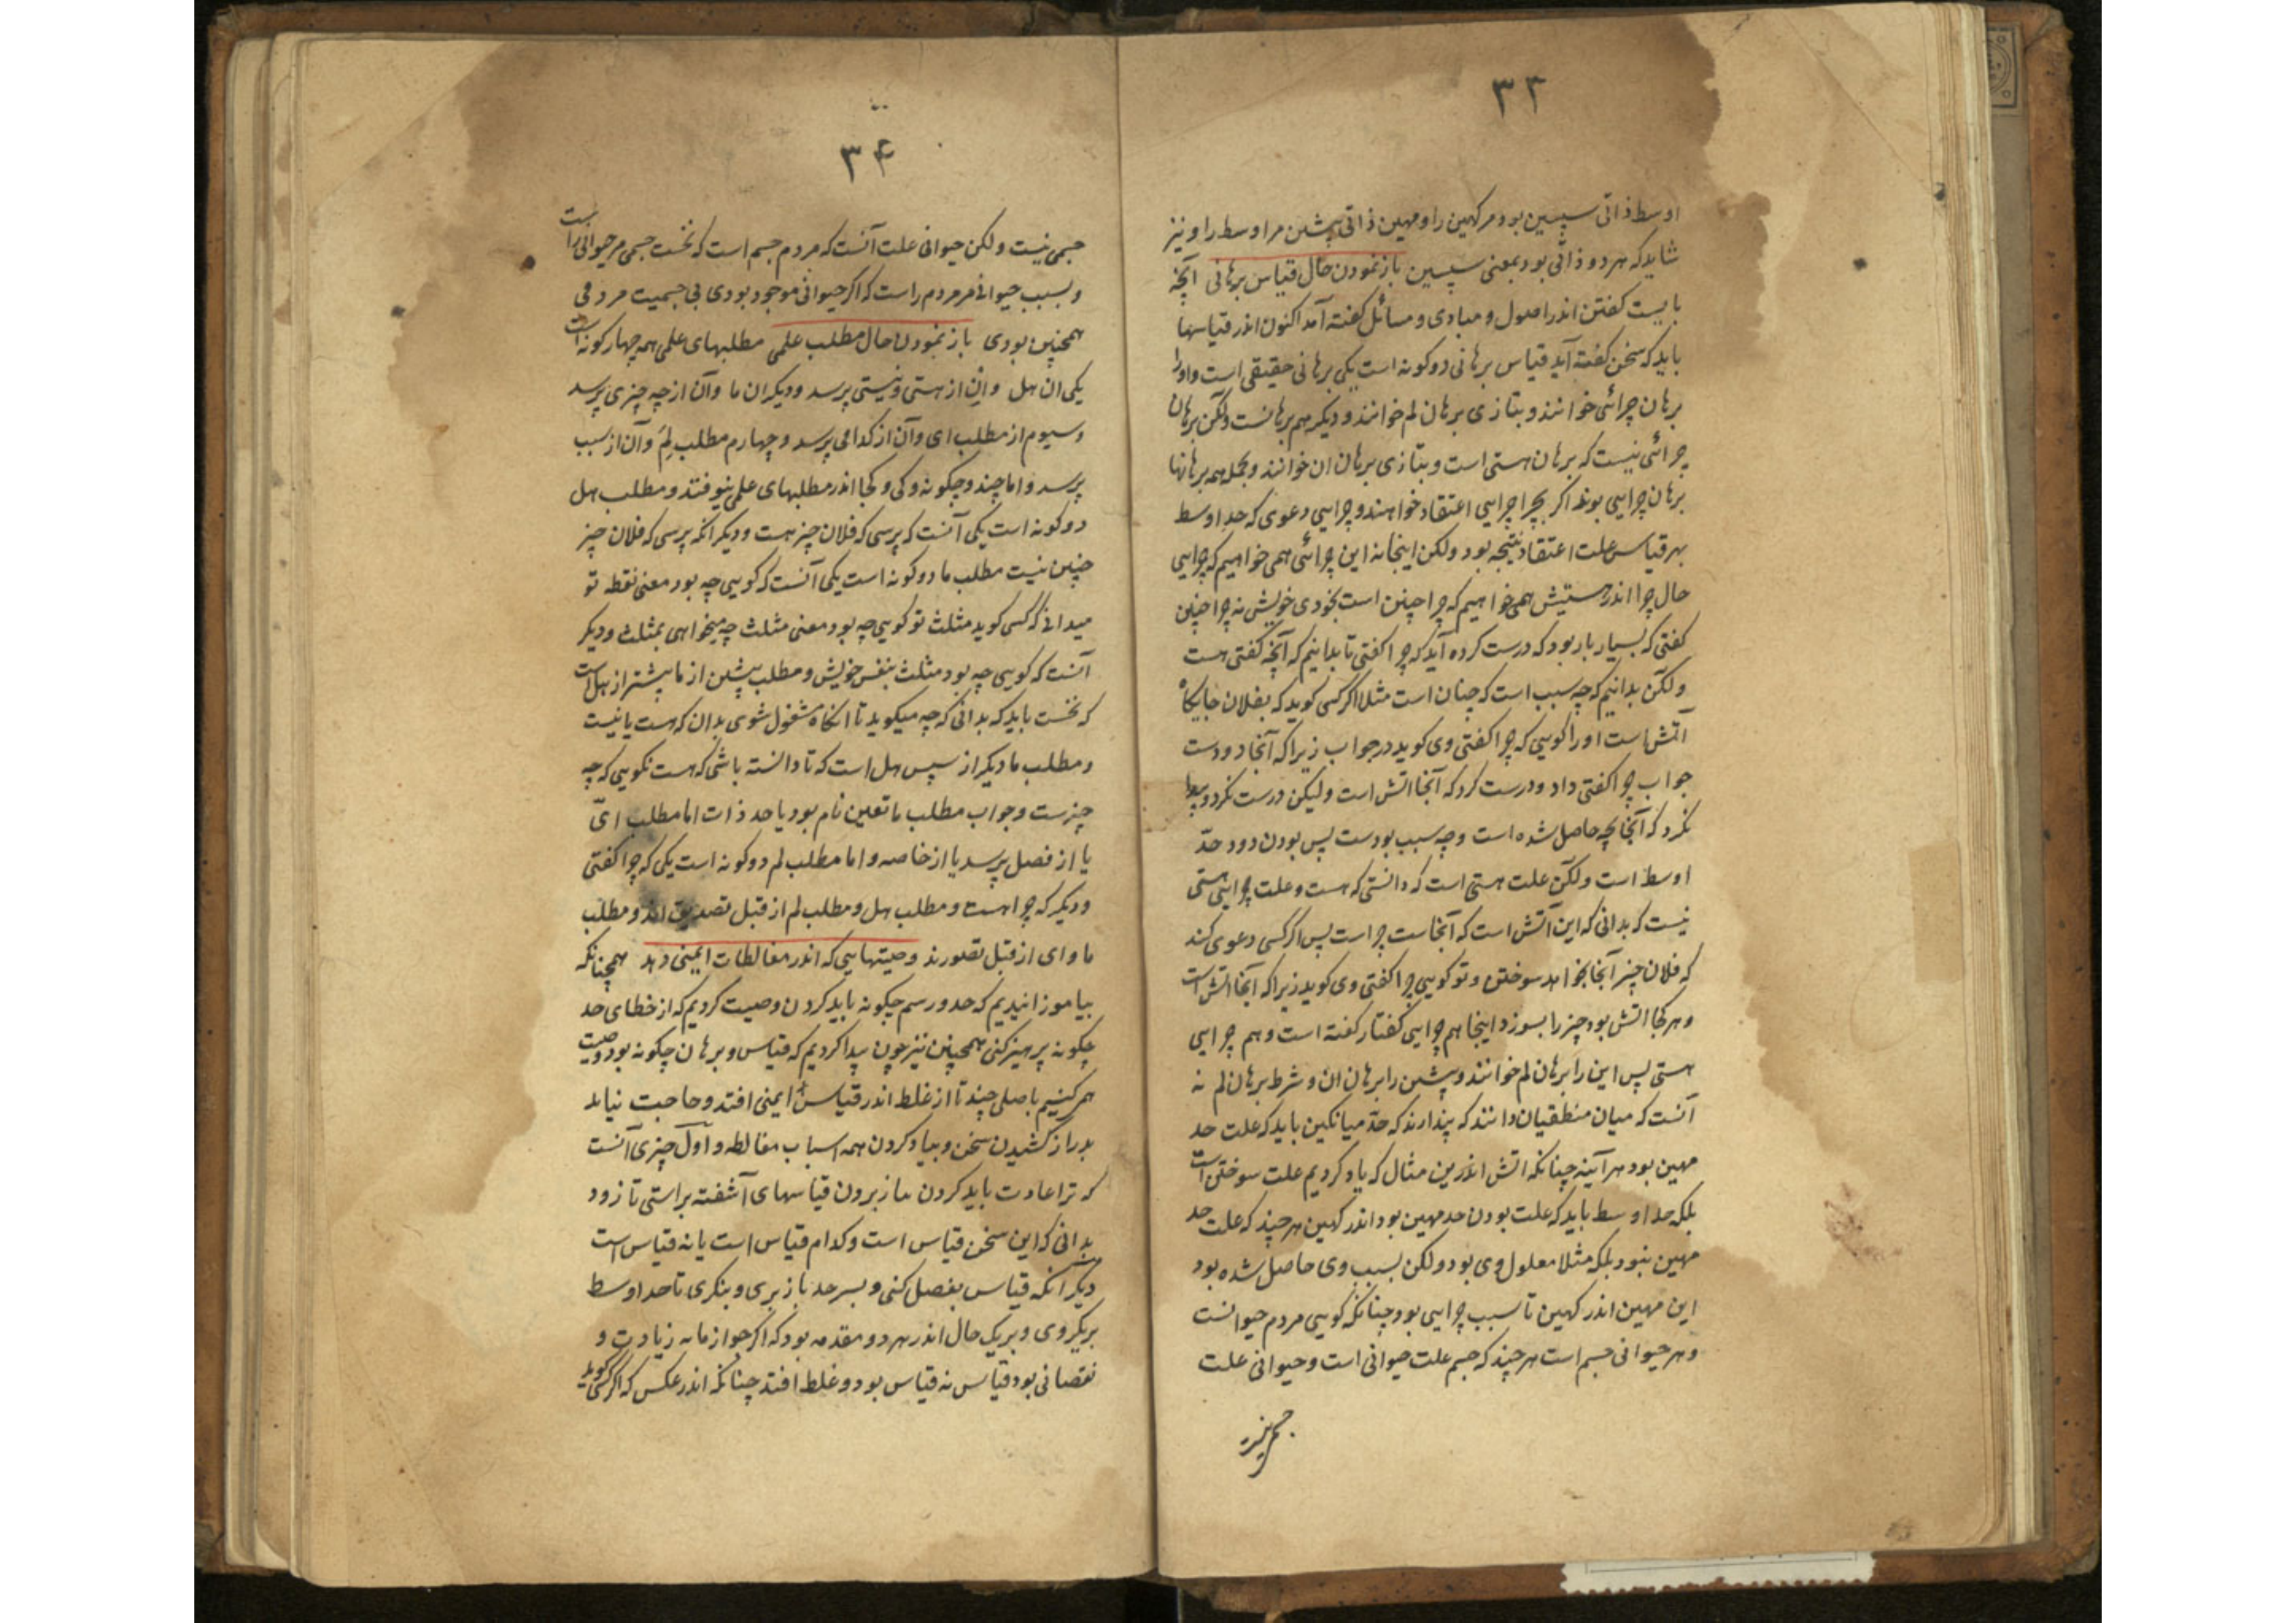 ۳۳
اوسط ذاتی سپسین بود مر کهین را و مهین ذاتی پیشین مر اوسط را و نیز
شاید که هر دو ذاتی بود بمعنی سپسین باز نمودن حال قیاس برهانی آنچه
بایست کفتن اندر اصول و مبادی و مسائل کفته آمد اکنون اندر قیاسها
باید که سخن کفته آید قیاس برهانی دو کونه است یکی برهانی حقیقی است و اورا
برهان چرائی خوانند و بتازی برهان لم خوانند و دیکر هم برهانست ولکن برهان
چرائی نیست که برهان هستی است و بتازی برهان ان خوانند و بجمله همه برهانها
برهان چرایی بوند اکر بچرا چرایی اعتقاد خواهند و چرایی دعوی که حد اوسط
بهر قیاس علت اعتقاد نتیجه بود ولکن اینجا نه این چرائی همی خواهیم که چرایی
حال چرا اندر هستیش همی خواهیم که چرا چنین است بخودی خویش نه چرا چنین
کفتی که بسیار بار بود که درست کرده آید که چرا کفتی تا بدانیم که آنچه کفتی هست
ولکن بدانیم که چه سبب است که چنان است مثلا اکر کسی کوید که بفلان جایکاه
آتش است اورا کویی که چرا کفتی وی کوید در جواب زیرا که آنجا دودست
جواب چرا کفتی داد و درست کرد که آنجا اتش است ولیکن درست نکرد و پیدا
نکرد که آنجا بچه حاصل شده است و چه سبب بودست پس بودن دود حدّ
اوسط است ولکن علت هستی است که دانستی که هست و علت چرایی هستی
نیست که بدانی که این آتش است که آنجاست چراست پس اکر کسی دعوی کند
که فلان چیز آنجا بخواهد سوختن و تو کویی چرا کفتی وی کوید زیرا که آنجا اتش است
و هر کجا اتش بود چیز را بسوزد اینجا هم چرایی کفتار کفته است و هم چرایی
هستی پس این را برهان لم خوانند و پیشین را برهان ان و شرط برهان لم نه
آنست که میان منطقیان دانند که پندارند که حدّ میانکین باید که علت حد
مهین بود هر آینه چنانکه اتش اندرین مثال که یاد کردیم علت سوختن است
بلکه حد اوسط باید که علت بودن حد مهین بود اندر کهین هر چند که علت حد
مهین نبود بلکه مثلا معلول وی بود ولکن بسبب وی حاصل شده بود
این مهین اندر کهین تا سبب چرایی بود چنانکه کویی مردم حیوانست
و هر حیوانی جسم است هر چند که جسم علت حیوانی است و حیوانی علت
جسمی نیست
۳۴
جسمی نیست ولکن حیوانی علت آنست که مردم جسم است که نخست جسمی مر حیوانی را است
و بسبب حیوانی مر مردم راست که اکر حیوانی موجود بودی بی جسمیت مردمی
همچنین بودی باز نمودن حال مطلب علمی مطلبهای علمی همه چهار کونه است
یکی ان هل و این از هستی و نیستی پرسد و دیکر ان ما و آن از چه چیزی پرسد
و سیوم از مطلب ای و آن از کدامی پرسد و چهارم مطلب لِمَ و آن از سبب
پرسد و اما چند و چکونه و کی و کجا اندر مطلبهای علمی نیوفتند و مطلب هل
دو کونه است یکی آنست که پرسی که فلان چیز هست و دیکر انکه پرسی که فلان چیز
چنین نیست مطلب ما دو کونه است یکی آنست که کویی چه بود معنی نقطه تو
میدانی که کسی کوید مثلث تو کویی چه بود معنی مثلث چه میخواهی بمثلث و دیکر
آنست که کویی چه بود مثلث بنفس خویش و مطلب پیشین از ما پیشتر از هل است
که نخست باید که بدانی که چه میکوید تا انکاه مشغول شوی بدان که هست یا نیست
و مطلب ما دیکر از سپس هل است که تا دانسته باشی که هست نکویی که چه
چیزست و جواب مطلب ما تعین نام بود یا حد ذات اما مطلب ایّ
یا از فصل پرسد یا از خاصه و اما مطلب لم دو کونه است یکی که چرا کفتی
و دیکر که چرا هست و مطلب هل و مطلب لم از قبل تصدیق اند و مطلب
ما و ای از قبل تصورند وصیتهایی که اندر مغالطات ایمنی دهد همچنانکه
بیاموزانیدیم که حد و رسم چکونه باید کردن وصیت کردیم که از خطای حد
چکونه پرهیز کنی همچنین نیز چون پیدا کردیم که قیاس و برهان چکونه بود وصیت
هم کنیم باصلی چند تا از غلط اندر قیاس ایمنی افتد و حاجت نیاید
بدراز کشیدن سخن و بیاد کردن همه اسباب مغالطه و اول چیزی آنست
که ترا عادت باید کردن بباز بردن قیاسهای آشفته براستی تا زود
بدانی که این سخن قیاس است و کدام قیاس است یا نه قیاس است
دیکر آنکه قیاس بفصل کنی و بسر حد باز بری و بنکری تا حد اوسط
بر یکروی و بر یک حال اندر هر دو مقدمه بود که اکر زیادت و
نقصانی بود قیاس نه قیاس بود و غلط افتد چنانکه اندر عکس که اکر کسی کوید